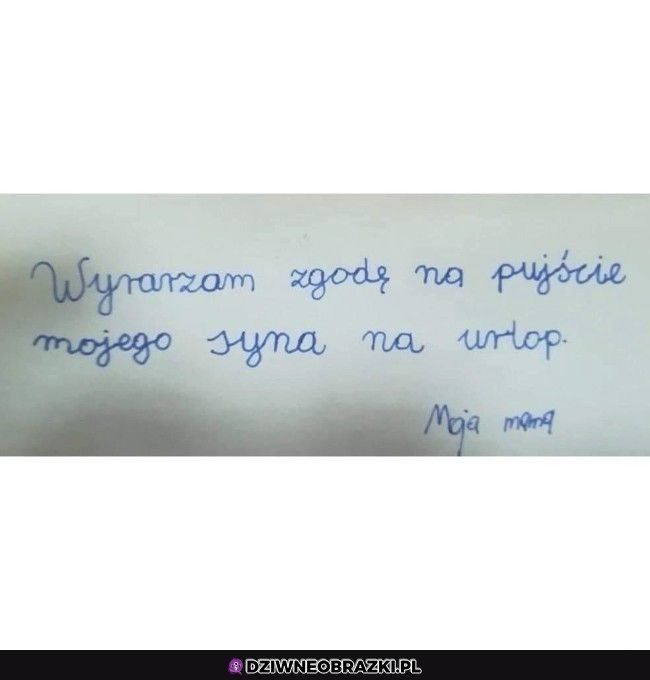 Wyrarzam zgodę na pujście
mojego syna na urlop.
Moja mama
DZIWNEOBRAZKI.PL